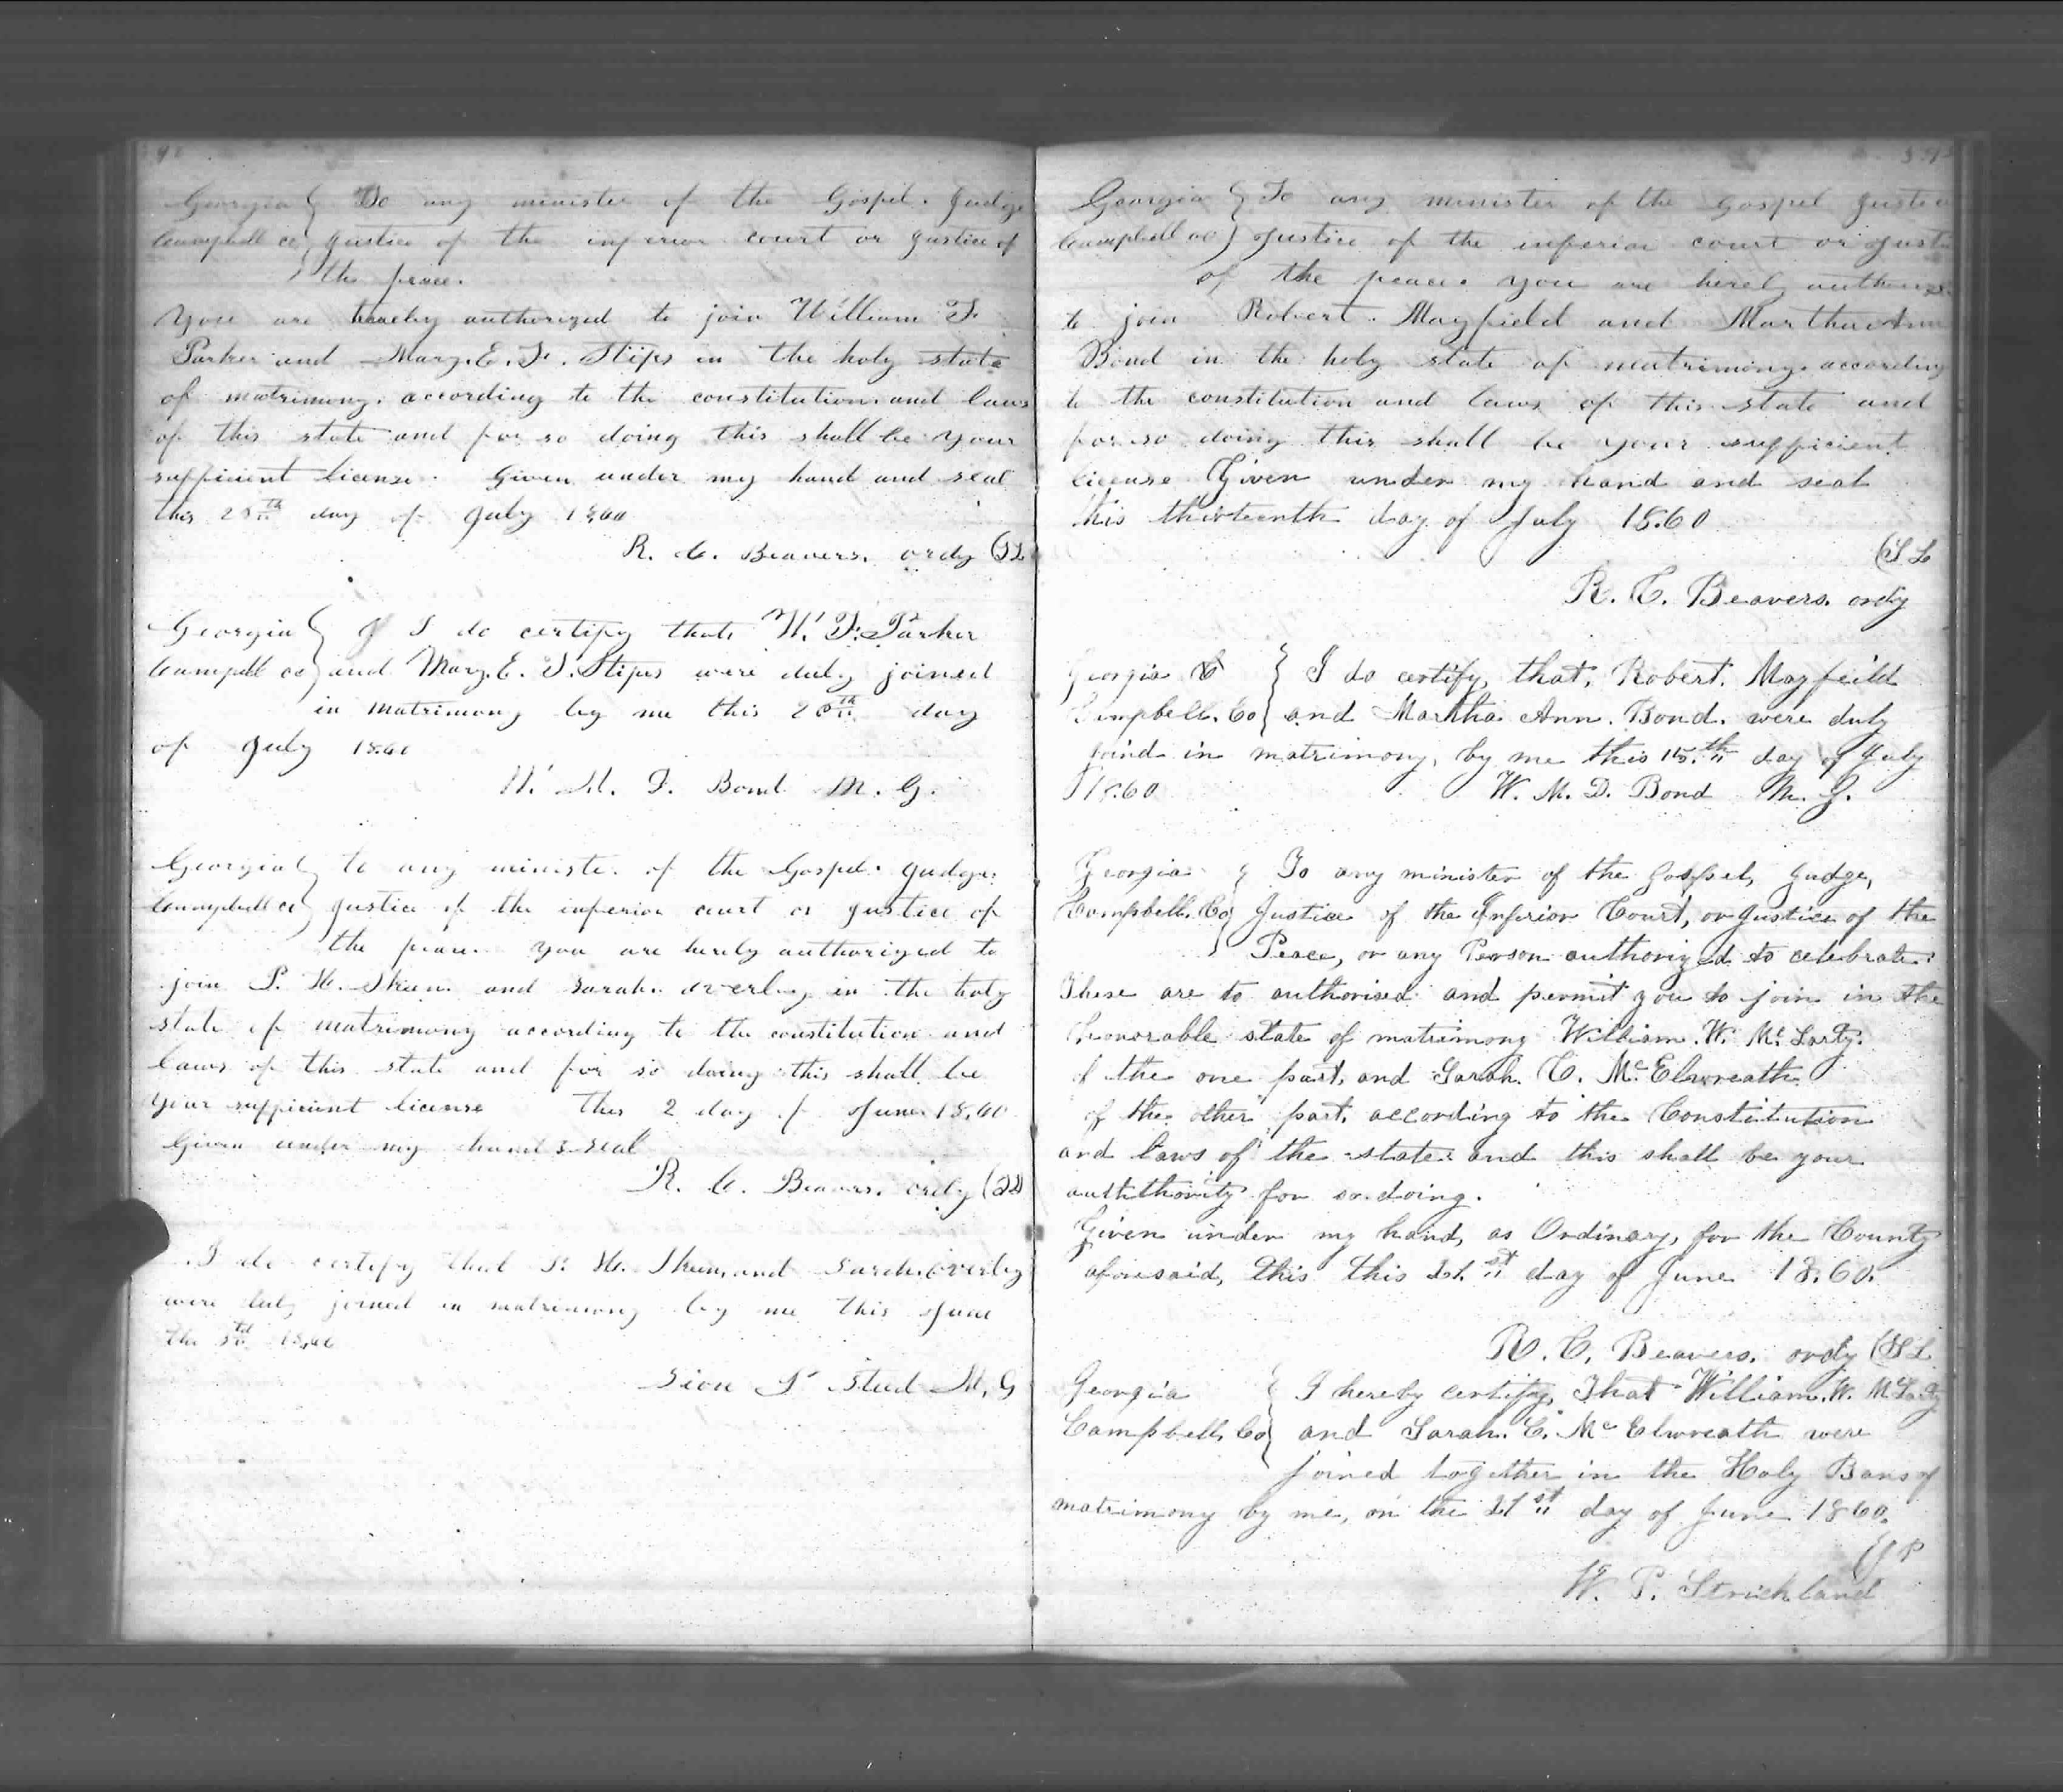 Georgia } To any minister of the Gospel. Judge
Campbell co } Justice of the inferior court or Justice of
the peace.
You are hereby authorized to join William F.
Parker and Mary. E. F. Stips in the holy state
of matrimony. according to the constitution and laws
of this state and for so doing this shall be your
sufficient license. Given under my hand and seal
this day of July 1860
R. C. Beavers. ordy (SL
Georgia } I do certify that W. F. Parker
Campell co } and Mary. E. F. Stips were duly joined
in matrimony by me this day
of July 1860
Bond M. G.
Georgia } to any ministe. of the Gospel. Judge.
Campbell co } Justice of the inferior court or Justice of
the peace. you are hereby authorized to
join and Sarah. overby in the holy
state of matrimony according to the constitution and
laws of this state and for so doing this shall be
your sufficient license this 2 day of June 1860
Given under my hand & seal
R. C. Beavers. ordy (SL)
I do certify that and Sarah. overby
were duly joined in matrimony by me this June
the 1860
Sion Steed M. G
Georgia } To any minister of the Gospel Justice
Campbell co } Justice of the inferior court or Just
of the peace. you are herely
to join Robert. Mayfield and Martha Ann
Bond in the holy state of matrimony. according
to the constitution and laws of this state and
for so doing this shall be your sufficient
license Given under my hand and seal
this thirteenth day of July 1860
(S L
R. C. Beavers. ordy
Georgia } I do certify, that, Robert. Mayfeild
Campbell. Co } and Martha Ann. Bond. were duly
joind in matrimony, by me this 15.th day of July
1860 W. M. D. Bond M. G.
Georgia } To any minister of the Gospel, Judge,
Campbell. Co } Justice of the Inferior Court, or Justice of the
Peace, or any Person authorized to celebrate:
These are to authorised and permit you to join in the
honorable state of matrimony William. W. Mc Larty.
of the one part, and Sarah. C. Mc Elwreath
of the other part, according to the Constitution
and laws of the state: and this shall be your
auththority for so doing.
Given under my hand, as Ordinary, for the County
aforesaid, this this 21.st day of June 1860.
R. C. Beavers. ordy (S L
Georgia } I hereby certify, That William. W. McLarty
Campbell Co } and Sarah. C. Mc Elwreath were
joined together in the Holy Bans of
matrimony by me, on the 21st day of June 1860.
J P
W. P. Strickland